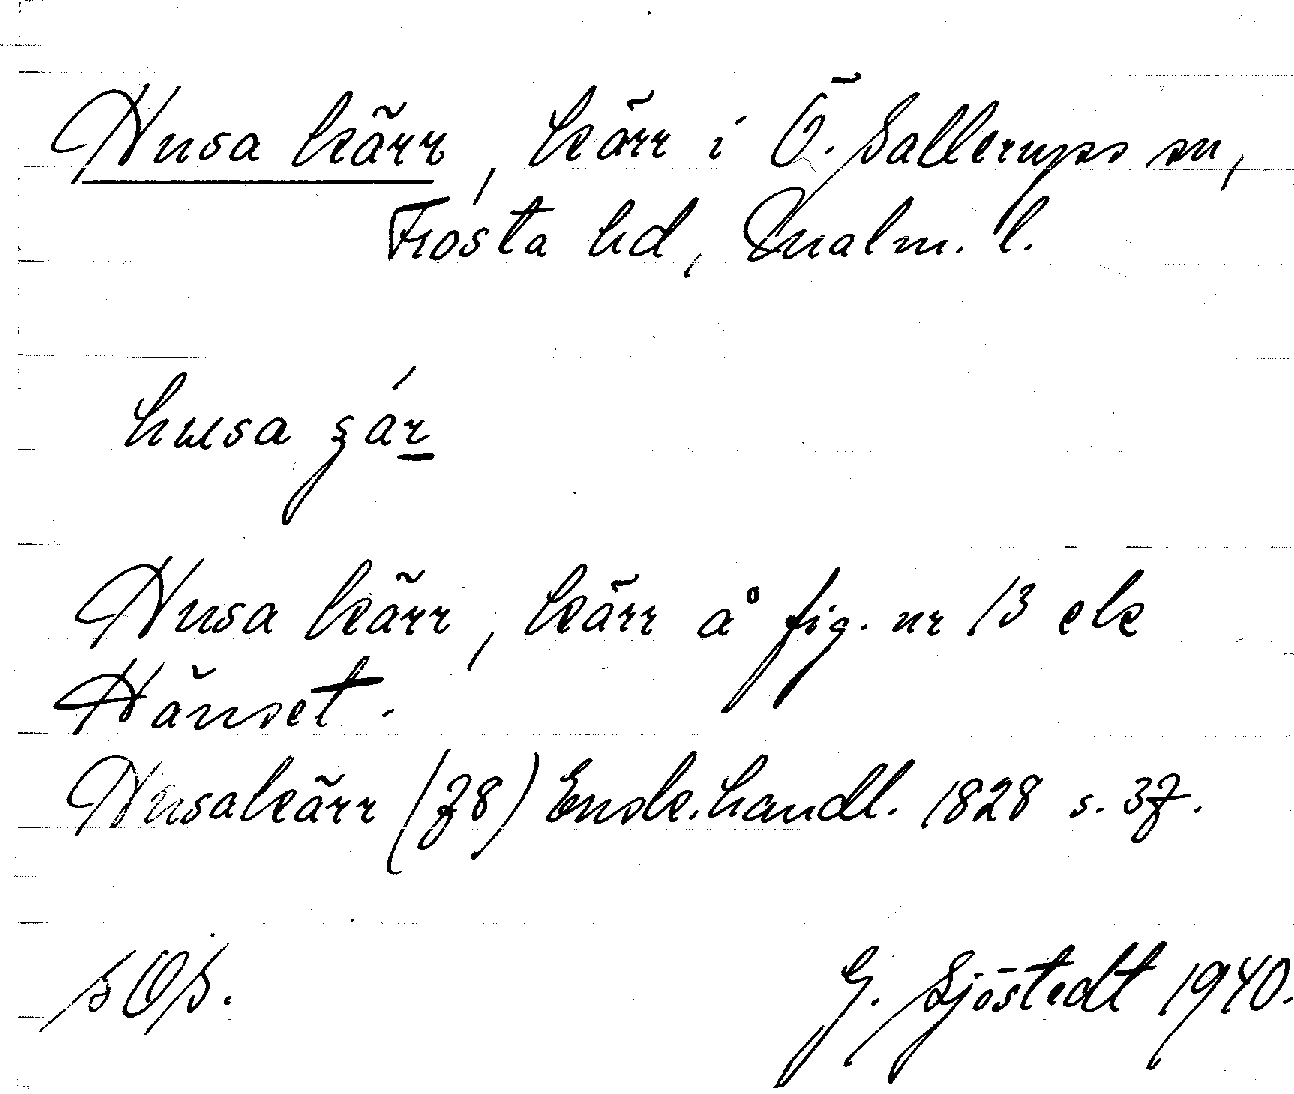 Husa kärr, kärr i Ö. Sallerups sn,
Frosta hd, Malm. l.
husa
Husa kärr, kärr å fig. nr 13 ek
Hänset.
Husakärr (78) Ensk. handl. 1828 s. 37.
SOS.
G. Sjöstedt 1940.